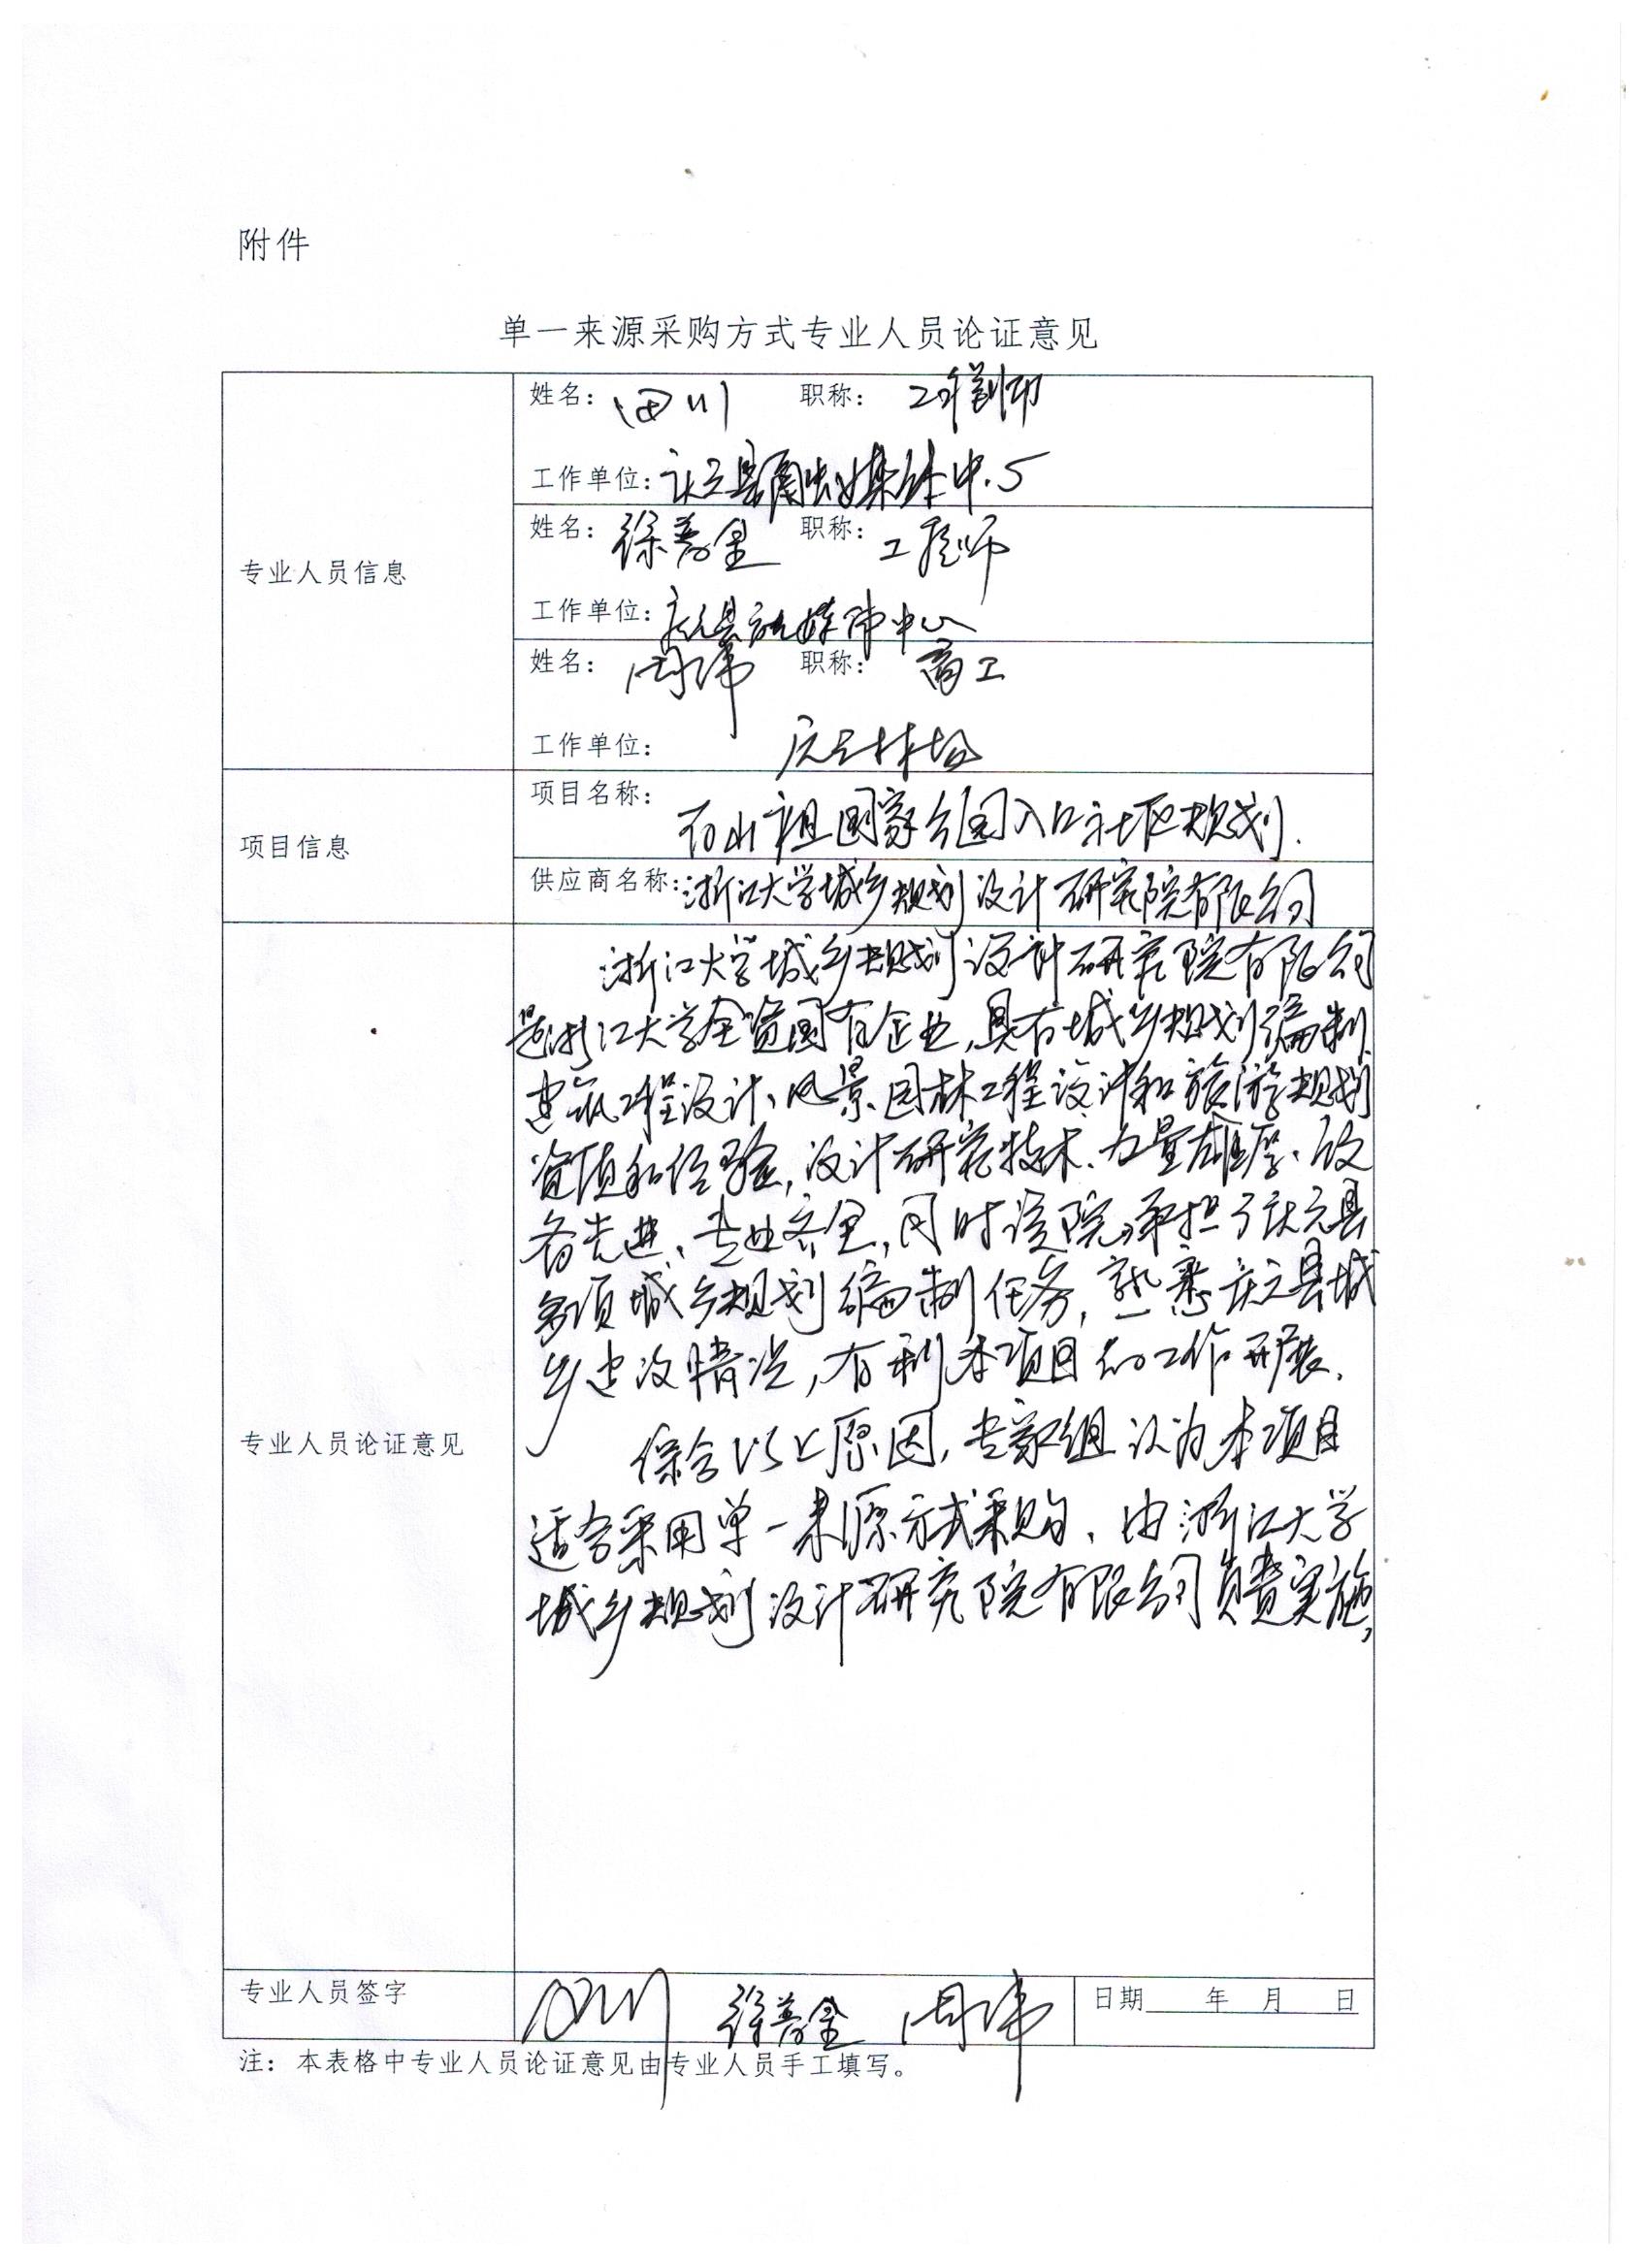 附件
单一来源采购方式专业人员论证意见
专业人员信息
姓名： 田川 职称： 工程师
工作单位：庆元县融媒体中心
姓名： 徐善金 职称： 工程师
工作单位：庆元县融媒体中心
姓名： 周伟 职称： 高工
工作单位： 庆元林场
项目信息
项目名称： 百山祖国家公园入口社区规划.
供应商名称：浙江大学城乡规划设计研究院有限公司
专业人员论证意见
浙江大学城乡规划设计研究院有限公司
是浙江大学全资国有企业,具有城乡规划编制、
建筑工程设计、风景园林工程设计和旅游规划
资质和经验,设计研究技术、力量雄厚、设
备先进、专业齐全,同时该院承担了庆元县
多项城乡规划编制任务,熟悉庆元县城
乡建设情况,有利本项目的工作开展.
综合以上原因,专家组认为本项目
适合采用单一来源方式采购、由浙江大学
城乡规划设计研究院有限公司负责实施,
专业人员签字 田川 徐善金 周伟 日期 年 月 日
注：本表格中专业人员论证意见由专业人员手工填写。